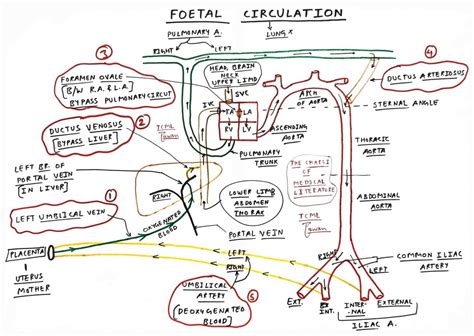 FOETAL CIRCULATION
PULMONARY A.
LUNG X
RIGHT
LEFT
3
4
FORAMEN OVALE
[B/W R.A. & L.A.]
BYPASS PULMONARY CIRCUIT
HEAD, BRAIN
NECK
UPPER LIMB
SVC
DUCTUS ARTERIOSUS
ARCH
OF AORTA
STERNAL ANGLE
IVC
RA
LA
RV
LV
DUCTUS VENOSUS
[BYPASS LIVER]
2
TCML
ASCENDING
AORTA
THORACIC
AORTA
PULMONARY
TRUNK
LEFT BR. OF
PORTAL VEIN
(IN LIVER)
RIGHT
THE CHARSI
OF
MEDICAL
LITERATURE
LOWER LIMB
ABDOMEN
THORAX
ABDOMINAL
AORTA
1
LEFT UMBILICAL VEIN
OXYGENATED
BLOOD
TCML
PORTAL VEIN
PLACENTA
UTERUS
MOTHER
LEFT
RIGHT
UMBILICAL
ARTERY
(DEOXYGENATED
BLOOD)
5
RIGHT
LEFT
COMMON ILIAC
ARTERY
EXT.
INT.
INTERNAL
EXTERNAL
ILIAC A.